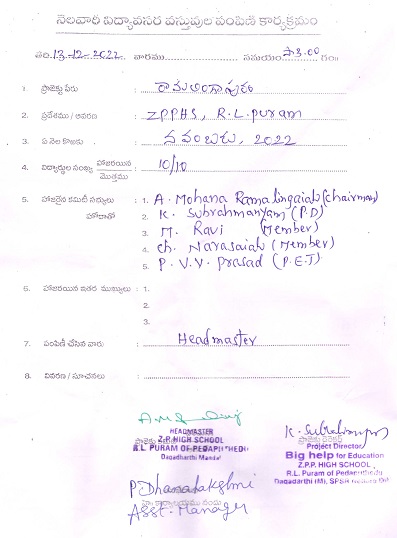 నెలవారీ విద్యావసర వస్తువుల పంపిణీ కార్యక్రమం
తేది. 13-12-2022 వారము............ సమయం సా 3.00 గం||
1. ప్రాజెక్టు పేరు : రామలింగాపురం
2. ప్రదేశము / ఆవరణ : ZPPHS, R.L. puram
3. ఏ నెల కొఱకు : నవంబరు, 2022
4. విద్యార్థుల సంఖ్య హాజరయిన / మొత్తము : 10/10
5. హాజరైన కమిటీ సభ్యులు : 1. A. Mohana Ramalingaiah (chairman)
హోదాతో 2. K. Subrahmanyam (P.D)
3. M. Ravi (Member)
4. Ch. Narasaiah (Member)
5. P. V. V. prasad (P.E.T)
6. హాజరయిన ఇతర ముఖ్యులు : 1.
2.
3.
7. పంపిణీ చేసిన వారు : Headmaster
8. వివరణ / సూచనలు :
HEADMASTER
Z.P. HIGH SCHOOL
R.L. PURAM OF PEDAPUTHEDU
Dagadarthi Mandal
K. Subrahmanyam
Project Director
Big help for Education
Z.P.P. HIGH SCHOOL,
R.L. Puram of Pedaputhedu
Dagadarthi (M), SPSR Nellore Dt
P Dhanalakshmi
Asst. Manager